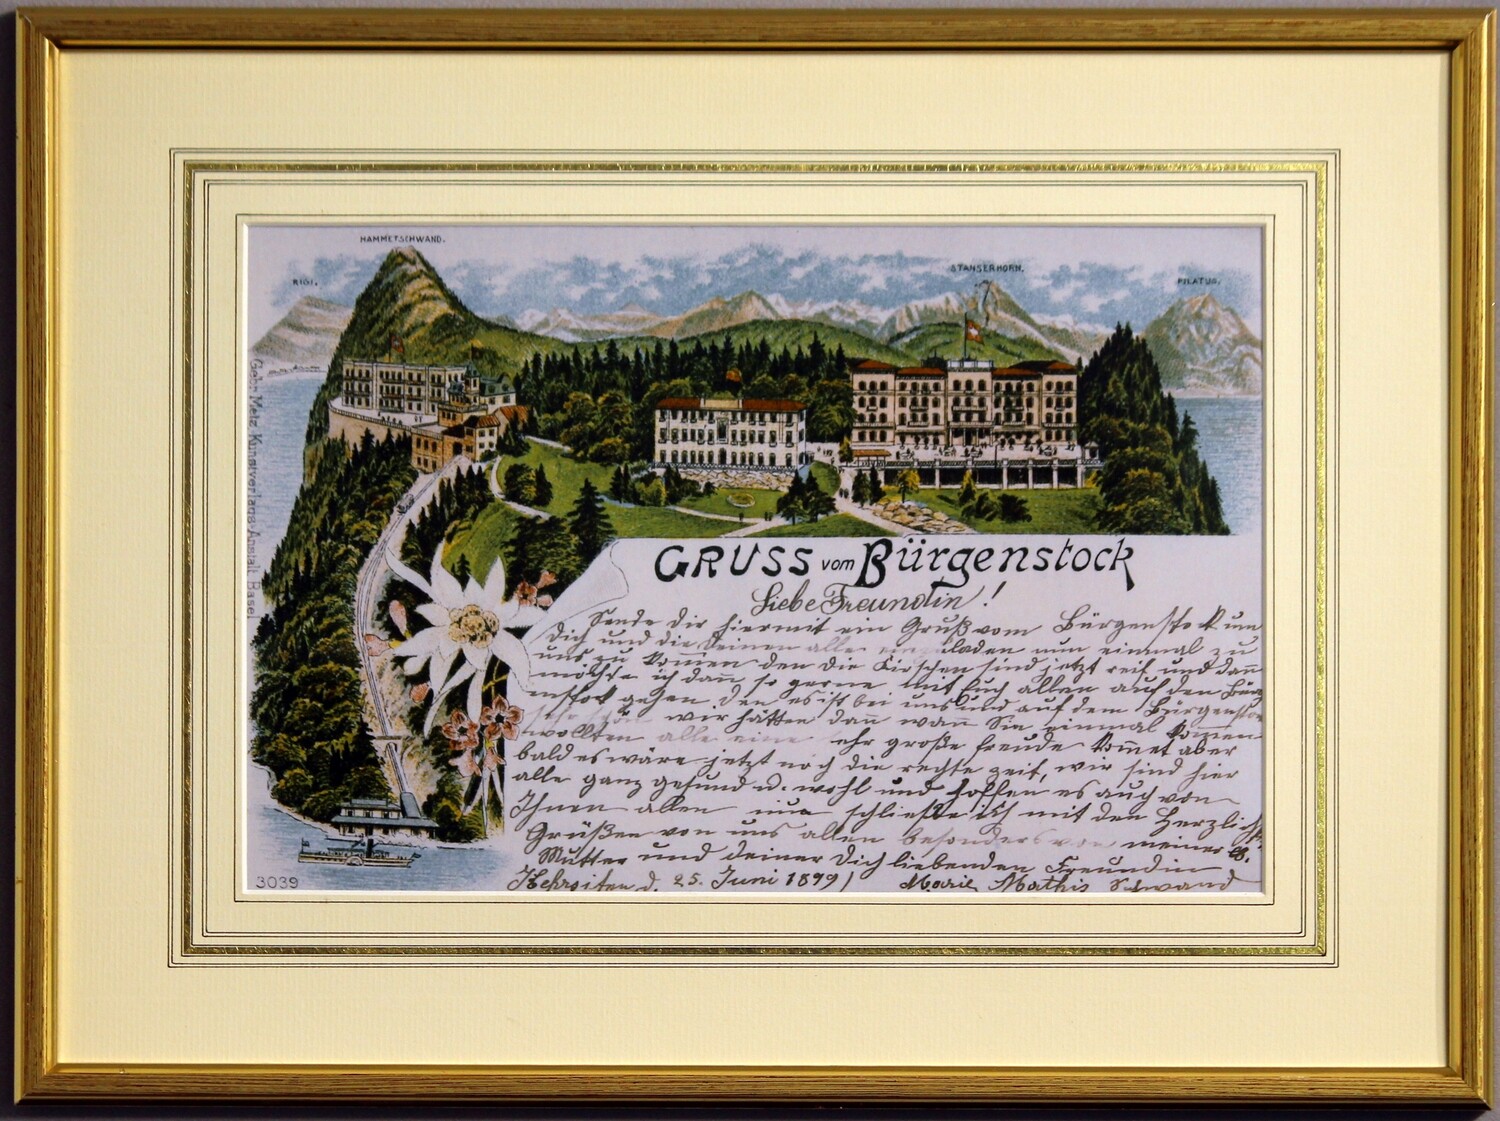 HAMMETSCHWAND.
RIGI.
STANSERHORN.
PILATUS.
Gebr. Metz, Kunstverlags-Anstalt, Basel
GRUSS vom Bürgenstock
Liebe Freundin!
Sende dir hiermit ein Gruß vom Bürgenstock um
dich und die Deinen alle einzuladen nun einmal zu
uns zu komen den die Kirschen sind jetzt reif und dan
möchte ich dan so gerne mit Euch allen auf den Bür
enstock gehen. den es ist bei uns und auf dem Bürgenstock
sehr schön wir hätten dan wan Sie einmal komen
wollten alle eine sehr große freude komet aber
bald es wäre jetzt noch die rechte zeit, wir sind hier
alle ganz gesund u. wohl und hoffen es auch von
Ihnen allen nun schließe ich mit den Herzlichst
Grüßen von uns allen besonders von meiner lb.
Mutter und deiner Dich liebenden Freundin
Kehrsiten d. 25. Juni 1899 / Marie Mathis Schwand
3039